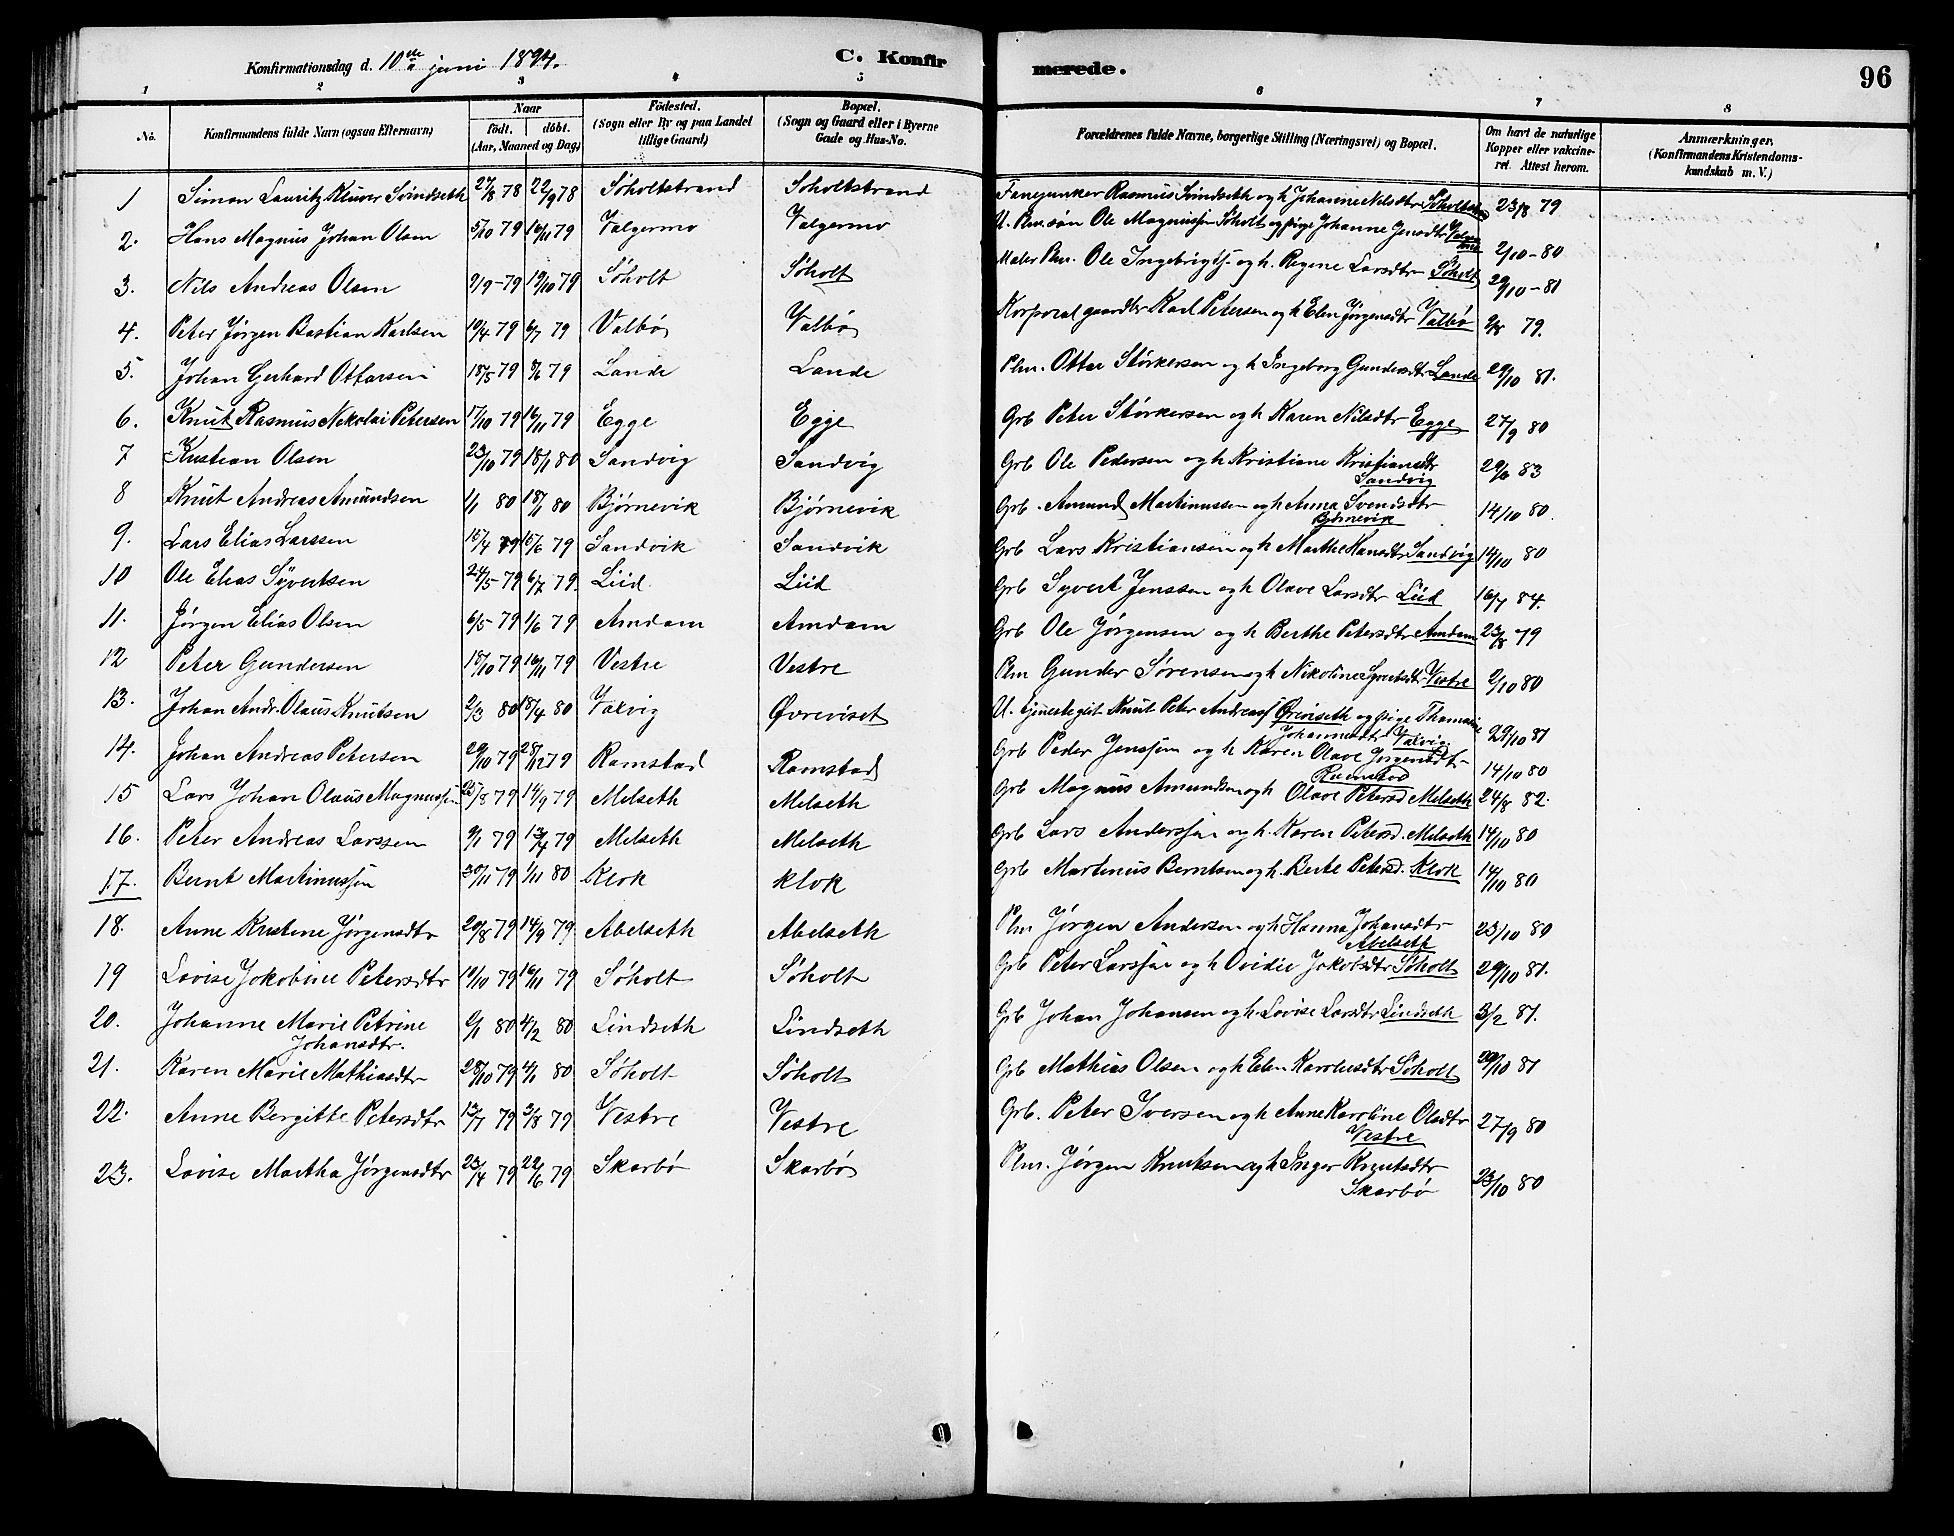 Konfirmationsdag d. 10de juni 1894.
C. Konfirmerede.
96
1 2 3 4 5 6 7 8
No. Konfirmandens fulde Navn (ogsaa Efternavn) Naar født. døbt. (Aar, Maaned og Dag) Fødested. (Sogn eller By og paa Landet tillige Gaard) Bopæl. (Sogn og Gaard eller i Byerne Gade og Hus-No. Forældrenes fulde Navne, borgerlige Stilling (Næringsvei) og Bopæl. Om havt de naturlige Kopper eller vakcineret. Attest herom. Anmærkninger. (Konfirmandens Kristendomskundskab m. V.)
1 Simon Lauritz Kluver Svindseth 27/8 78 22/9 78 Søholtstrand Søholtstrand Fanejunker Rasmus Svindseth og h Johanne Nilsdtr 23/8 79
2. Hans Magnus Johan Olsen 5/10 79 16/11 79 Valgermo Valgermo U. Ole Magnussen Søholt og pige Johanne Jensdtr 2/10-80
3. Nils Andreas Olsen 9/9-79 19/10 79 Søholt Søholt Maler Plm. Ole Ingebrigts. og h. Regine Larsdtr Søholt 29/10-81
4. Peter Jørgen Bastian Karlsen 19/4 79 6/7 79 Valbø Valbø Korporal gaardbr Karl Petersen og h Elen Jørgensdtr Valbø 9/8 79.
5. Johan Gerhard Ottarsen 18/5 79 79 Lande Lande Plm. Ottar Størkersen og h Ingeborg Gundersdtr Lande 29/10 81.
6. Knut Rasmus Nikolai Petersen 17/10 79 16/11 79 Egge Egge Grb Peter Størkersen og h Karen Nilsdtr Egge 27/9 80
7 Kristian Olsen 23/10 79 18/1 80 Sandvig Sandvig Grb Ole Pedersen og h Kristiane Kristiansdtr Sandvig 29/6 83
8 Knut Andreas Amundsen 1/1 80 18/1 80 Bjørnevik Bjørnevik Grb. Amund Martinussen og h Anna Svendsdtr Bjørnevik 14/10 80.
9. Lars Elias Larssen 15/4 79 15/6 79 Sandvik Sandvik Grb Lars Kristiansen og h Marthe Hansdtr Sandvig 14/10 80
10 Ole Elias Syvertsen 24/5 79 6/7 79. Liid. Liid Grb Syvert Jenssen og h Olave Larsdtr Liid 16/7 84.
11. Jørgen Elias Olsen 6/5 79 1/6 79 Amdam Amdam Grb Ole Jørgensen og h Berthe Petersdtr Amdam 23/8 79
12 Peter Gundersen 18/10 79 16/11 79 Vestre Vestre Plm Gunder Sørensen og h Nikoline Syvertsdtr Vestre 2/10 80
13. Johan Andr. Olaus Knutsen 2/3 80 18/4 80 Valvig Øvreviset U. Knut Peter Andreas Øvreviseth og pige Thomasine Johannesdtr Valvig 29/10 81
14. Johan Andreas Petersen 29/10 79 28/12 79 Ramstad Ramstad Grb Peder Jenssen og h Karen Olave Jørgensdtr Ramstad 14/10 80
15 Lars Johan Olaus Magnussen 25/8 79 14/9 79 Melseth Melseth Grb Magnus Amundsen og h Olave Petersd Melseth 24/8 82.
16. Peter Andreas Larssen 9/1 79 13/4 79 Melseth Melseth Grb Lars Anderssen og h. Karen Petersd. Melseth 14/10 80
17. Bernt Martinussen 30/11 79 1/11 80 Klok Klok Grb Martinus Berntsen og h. Berte Petersd. Klok 14/10 80
18. Anne Kristine Jørgensdtr 20/8 79 14/9 79. Abelseth Abelseth Plm Jørgen Andersen og h Hanna Johansdtr Abelseth 23/10 80
19 Lovise Jokobine Petersdtr 10/10 79 16/11 79 Søholt Søholt Grb Peter Larssen og h Ovidie Jakobsdtr Søholt 29/10 81.
20. Johanne Marie Petrine Johansdtr. 6/1 80 4/2 80 Lindseth Lindseth Grb Johan Johansen og h. Lovise Larsdtr Lindseth 3/2 81.
21. Karen Marie Mathiasdtr 28/10 79 4/1 80 Søholt Søholt Grb Mathias Olsen og h Elen Karolusdtr Søholt 29/10 81
22. Anne Bergitte Petersdtr 13/7 79 3/8 79 Vestre Vestre Grb. Peter Iversen og h Anne Karoline Olsdtr Vestre 27/9 80
23. Lovise Martha Jørgensdtr 23/4 79 22/6 79 Skarbø Skarbø Plm. Jørgen Knutsen og h Inger Knutsdtr Skarbø 23/10 80